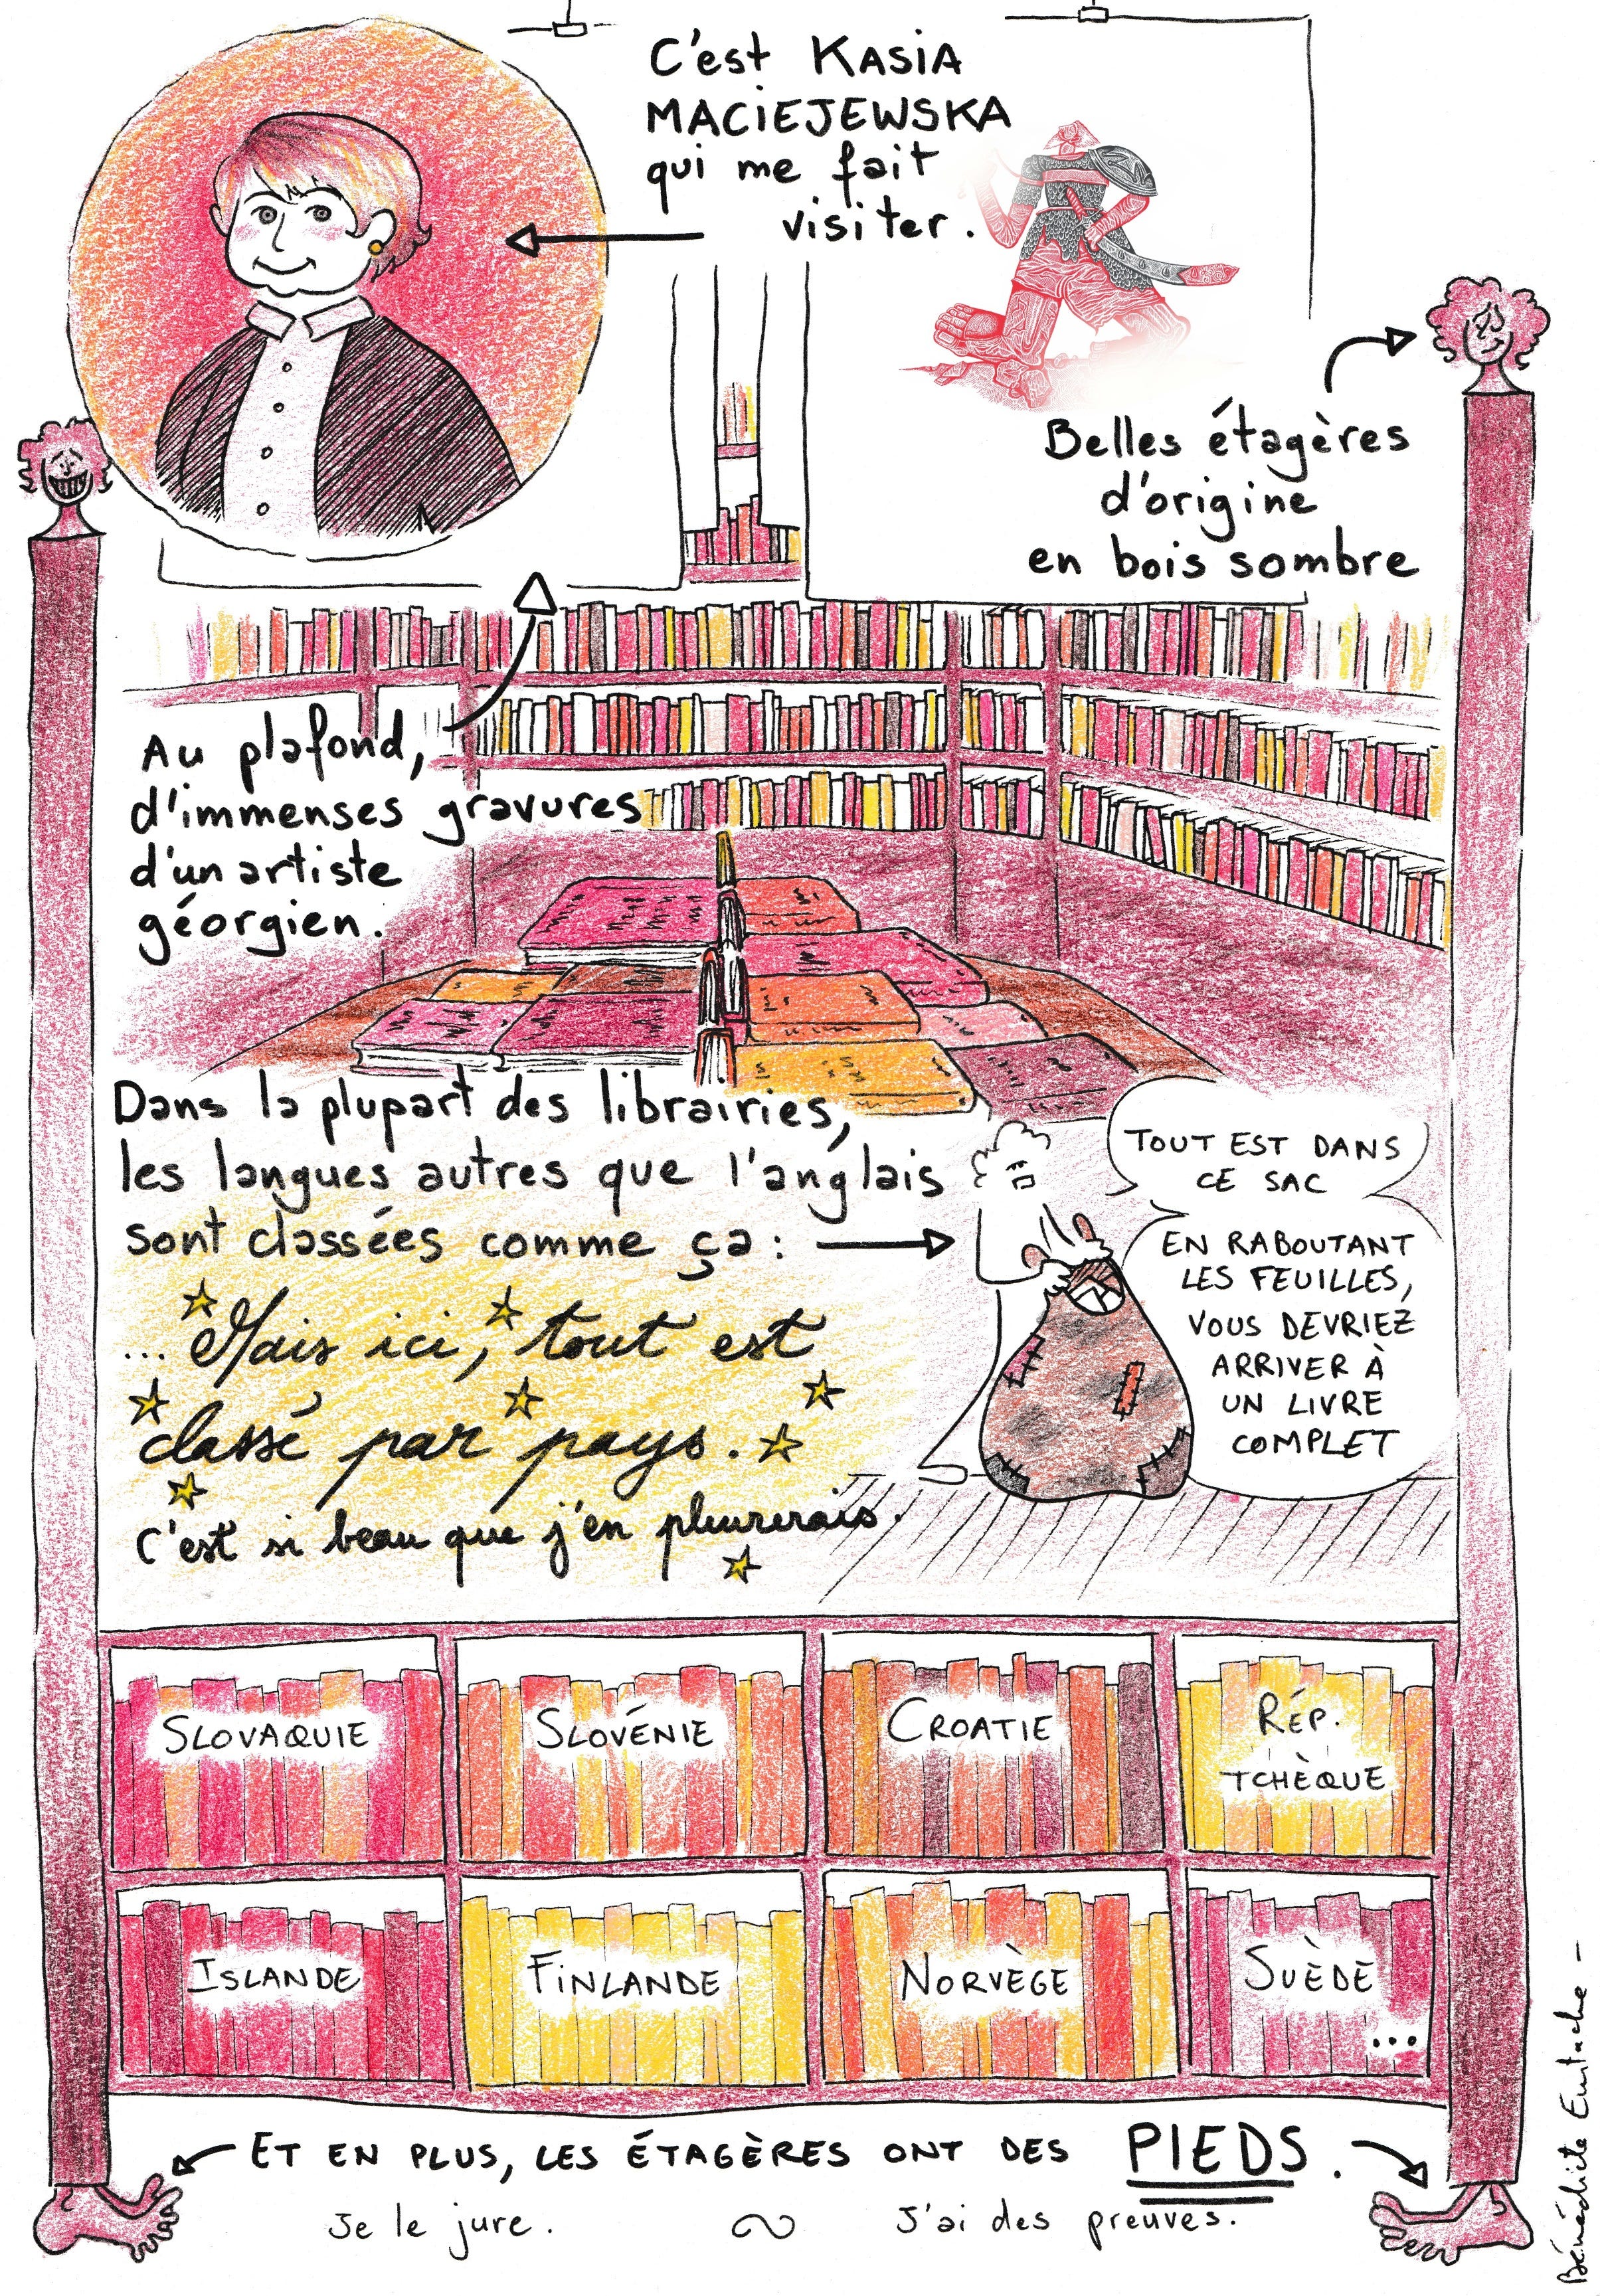 C'est KASIA
MACIEJEWSKA
qui me fait
visiter.
Belles étagères
d'origine
en bois sombre
Au plafond,
d'immenses gravures
d'un artiste
géorgien.
Dans la plupart des librairies,
les langues autres que l'anglais
sont classées comme ça :
TOUT EST DANS
CE SAC
EN RABOUTANT
LES FEUILLES,
VOUS DEVRIEZ
ARRIVER À
UN LIVRE
COMPLET
... Mais ici, tout est
classé par pays.
C'est si beau que j'en pleurerais.
SLOVAQUIE
SLOVÉNIE
CROATIE
RÉP.
TCHÈQUE
ISLANDE
FINLANDE
NORVÈGE
SUÈDE
...
ET EN PLUS, LES ÉTAGÈRES ONT DES PIEDS.
Je le jure.
J'ai des preuves.
Bénédicte Eustache -